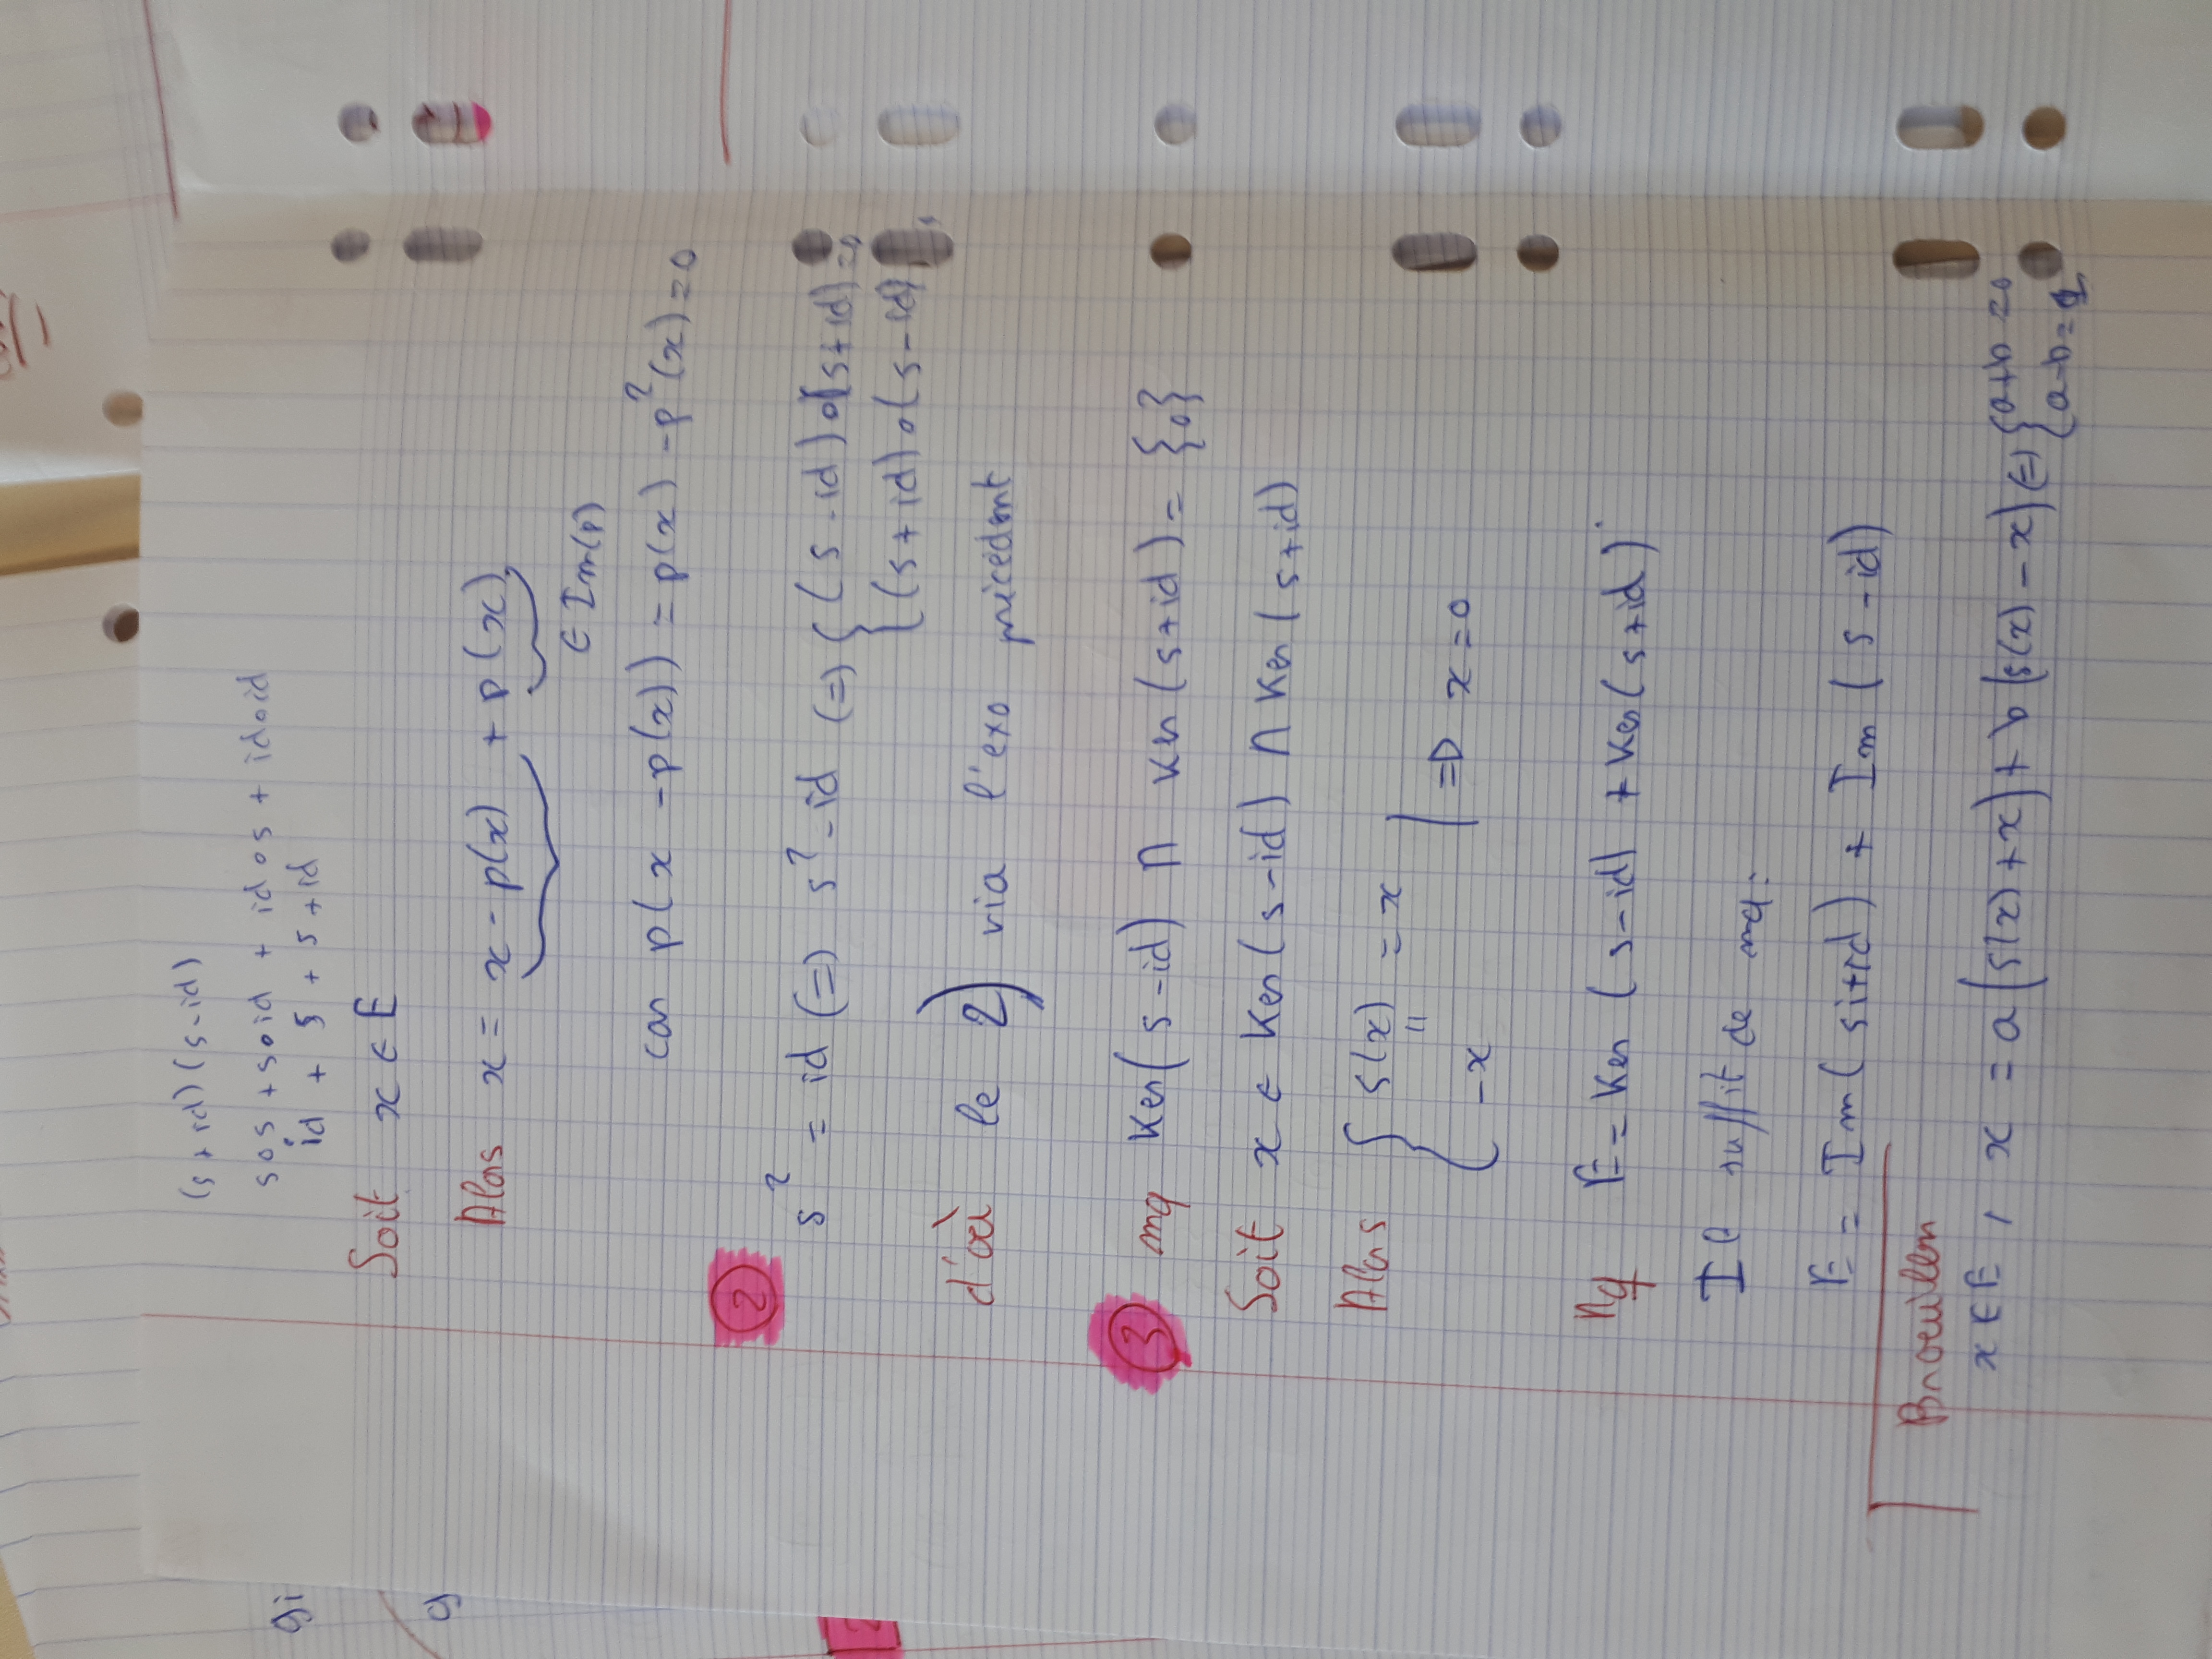 (s+id)(s-id)
sos + soid + idos + idoid
id + s + s + id
Soit x ∈ E
Alors x = x - p(x) + p(x)
∈ Im(p)
car p(x - p(x)) = p(x) - p²(x) = 0
② s² = id (=) s² - id (=) { (s-id)o(s+id) = 0
{ (s+id)o(s-id)
d'où le 2) via l'exo précedent
③ mq Ker(s-id) ∩ Ker(s+id) = {0}
Soit x ∈ Ker(s-id) ∩ Ker(s+id)
Alors { s(x) = x
"
-x | => x = 0
Mq E = Ker(s-id) + Ker(s+id).
Il suffit de mq:
E = Im(s+id) + Im(s-id)
Brouillon
x ∈ E, x = a(s(x)+x) + b(s(x)-x) (=) { a+b = 0
{ a-b = 1
gi
g
2